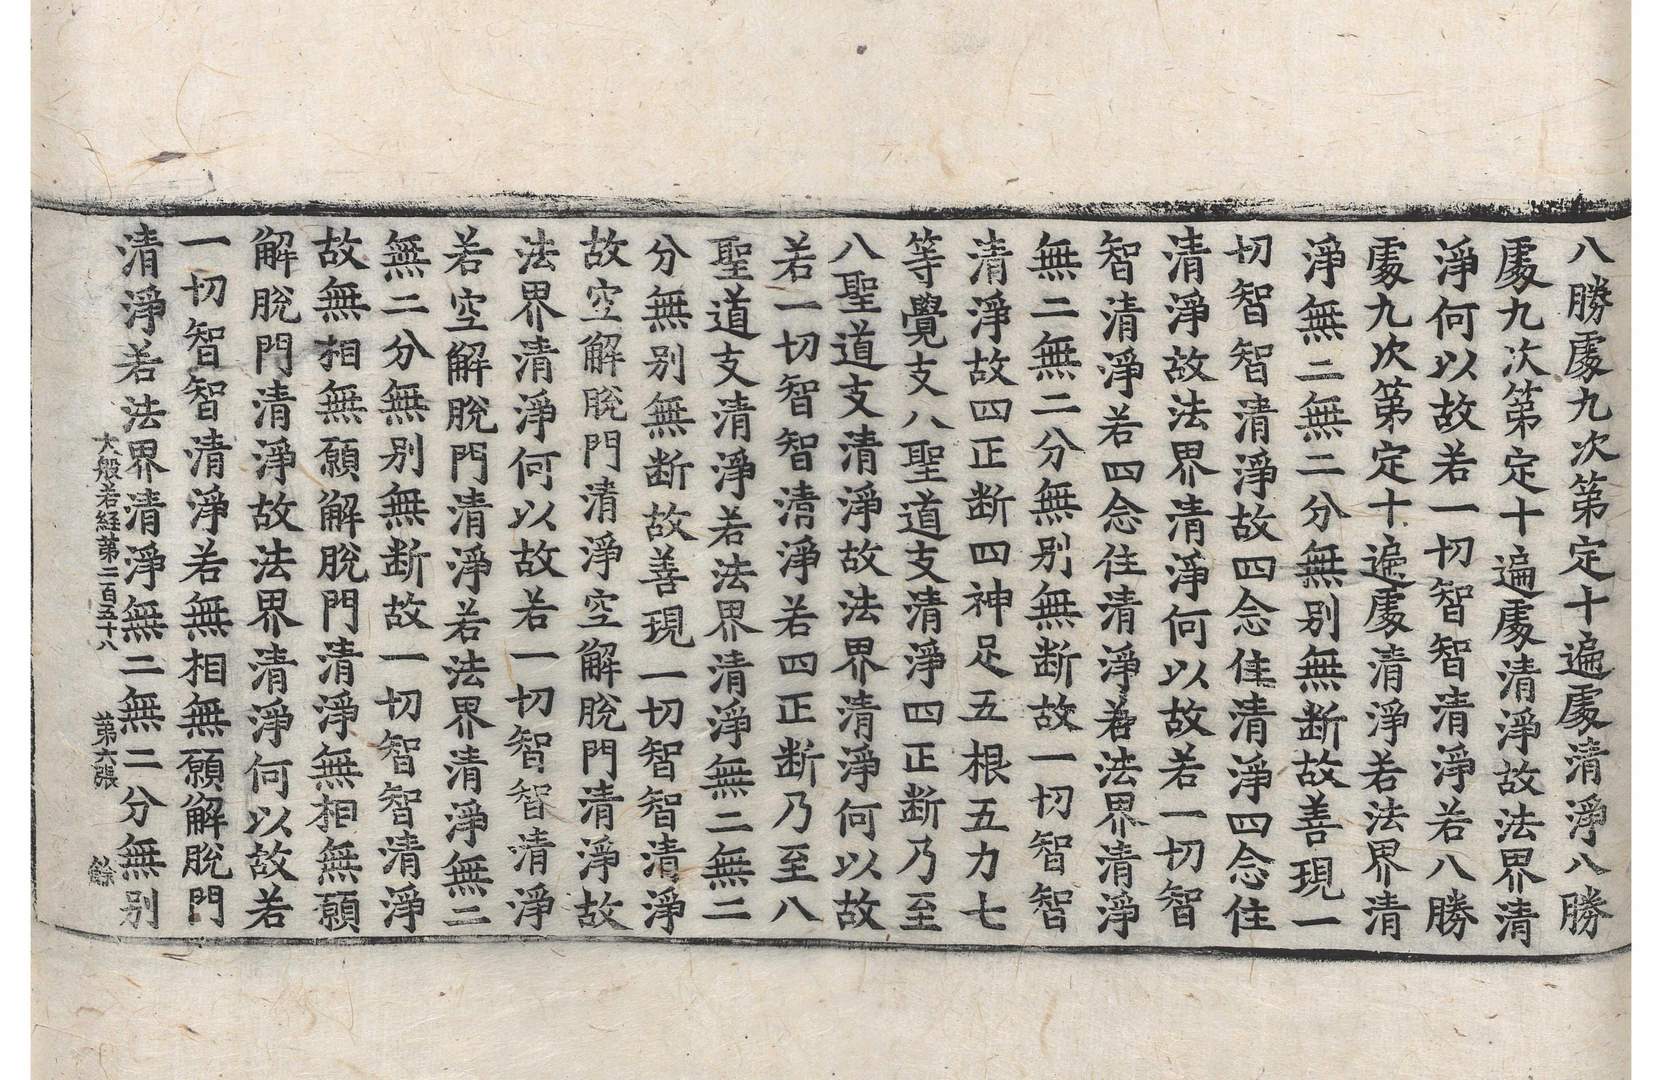 八勝處九次第定十遍處清淨八勝
處九次第定十遍處清淨故法界清
淨何以故若一切智智清淨若八勝
處九次第定十遍處清淨若法界清
淨無二無二分無别無断故善現一
切智智清淨故四念住清淨四念住
清淨故法界清淨何以故若一切智
智清淨若四念住清淨若法界清淨
無二無二分無别無断故一切智智
清淨故四正断四神足五根五力七
等覺支八聖道支清淨四正断乃至
八聖道支清淨故法界清淨何以故
若一切智智清淨若四正断乃至八
聖道支清淨若法界清淨無二無二
分無别無断故善現一切智智清淨
故空解脫門清淨空解脫門清淨故
法界清淨何以故若一切智智清淨
若空解脫門清淨若法界清淨無二
無二分無别無断故一切智智清淨
故無相無願解脫門清淨無相無願
解脫門清淨故法界清淨何以故若
一切智智清淨若無相無願解脫門
清淨若法界清淨無二無二分無别
大般若経第二百五十八 第六張 餘